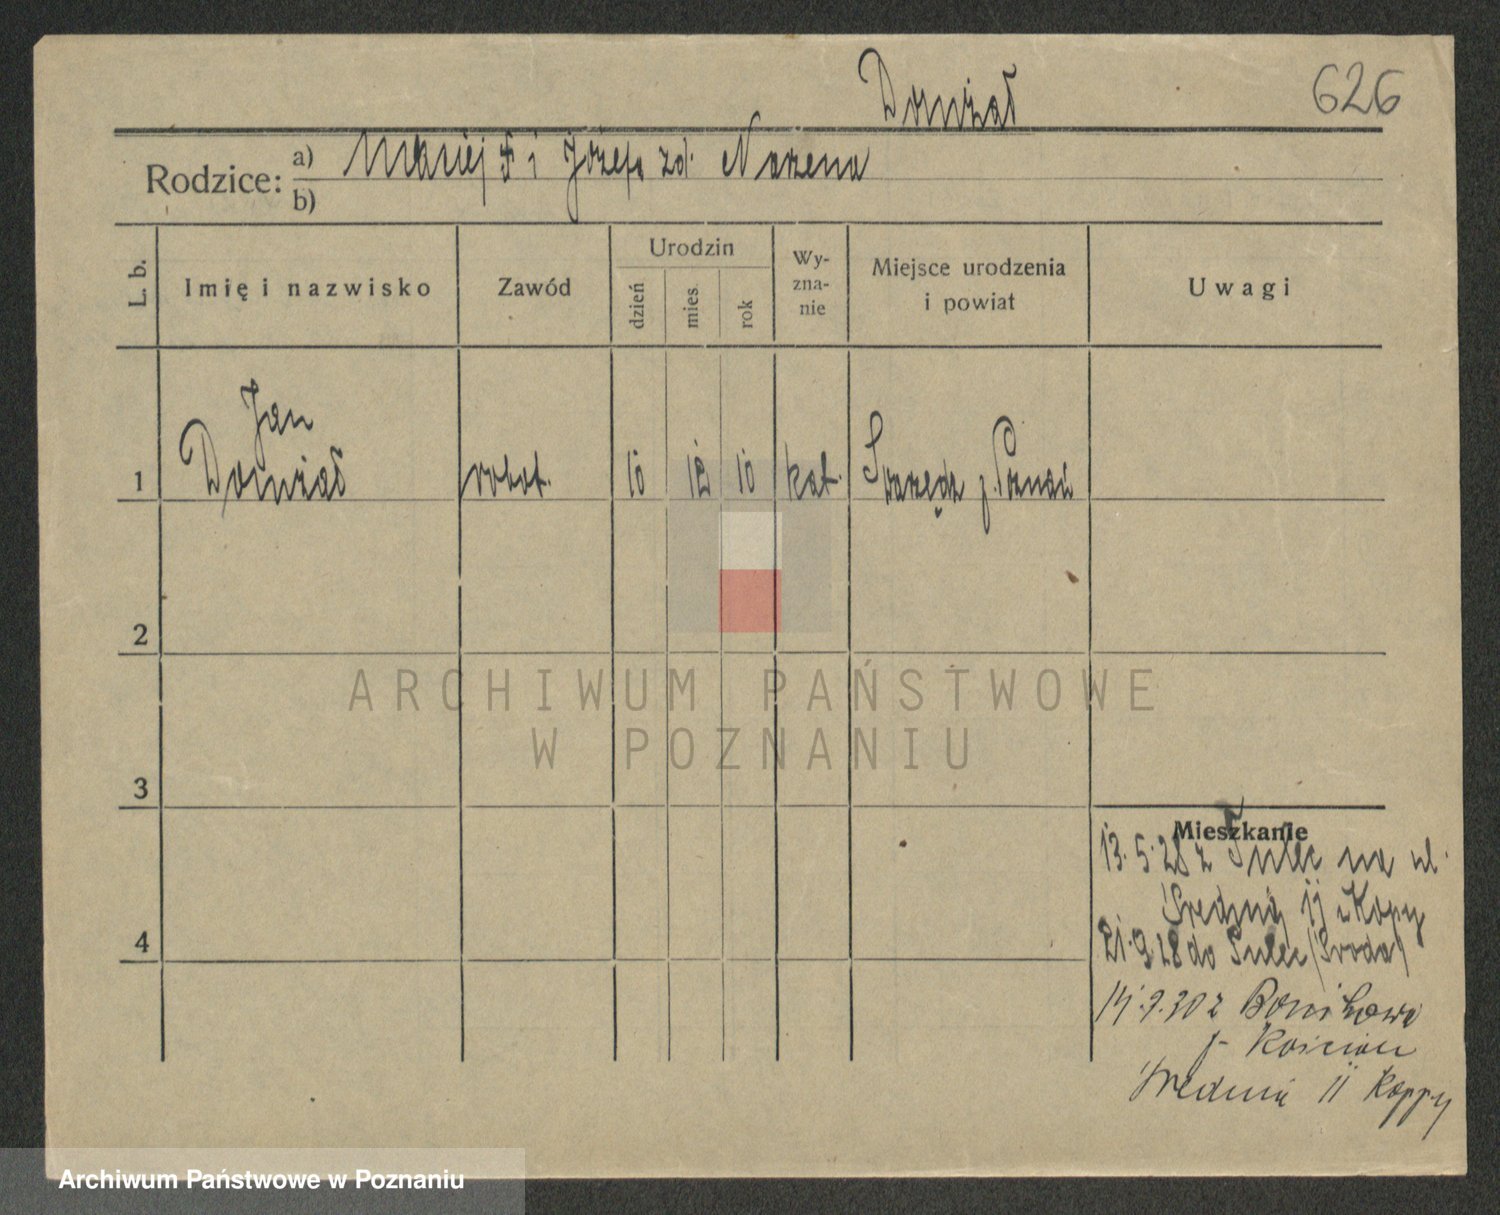 626
Rodzice:
a) Maciej † i Józefa zd.
b)
L. b.
Imię i nazwisko
Zawód
Urodzin
dzień
mies.
rok
Wy-
zna-
nie
Miejsce urodzenia
i powiat
Uwagi
Jan
1 robot. 10 12 10 kat. p. Poznań
2
3
4
Mieszkanie
13.5.28 z Tulec na ul.
Średnią 11 u Kopy
21.9.28 do Tulec (Środa)
z Bonikowa
p. Kościan
Średnia 11 Koppy
ARCHIWUM PAŃSTWOWE
W POZNANIU
Archiwum Państwowe w Poznaniu